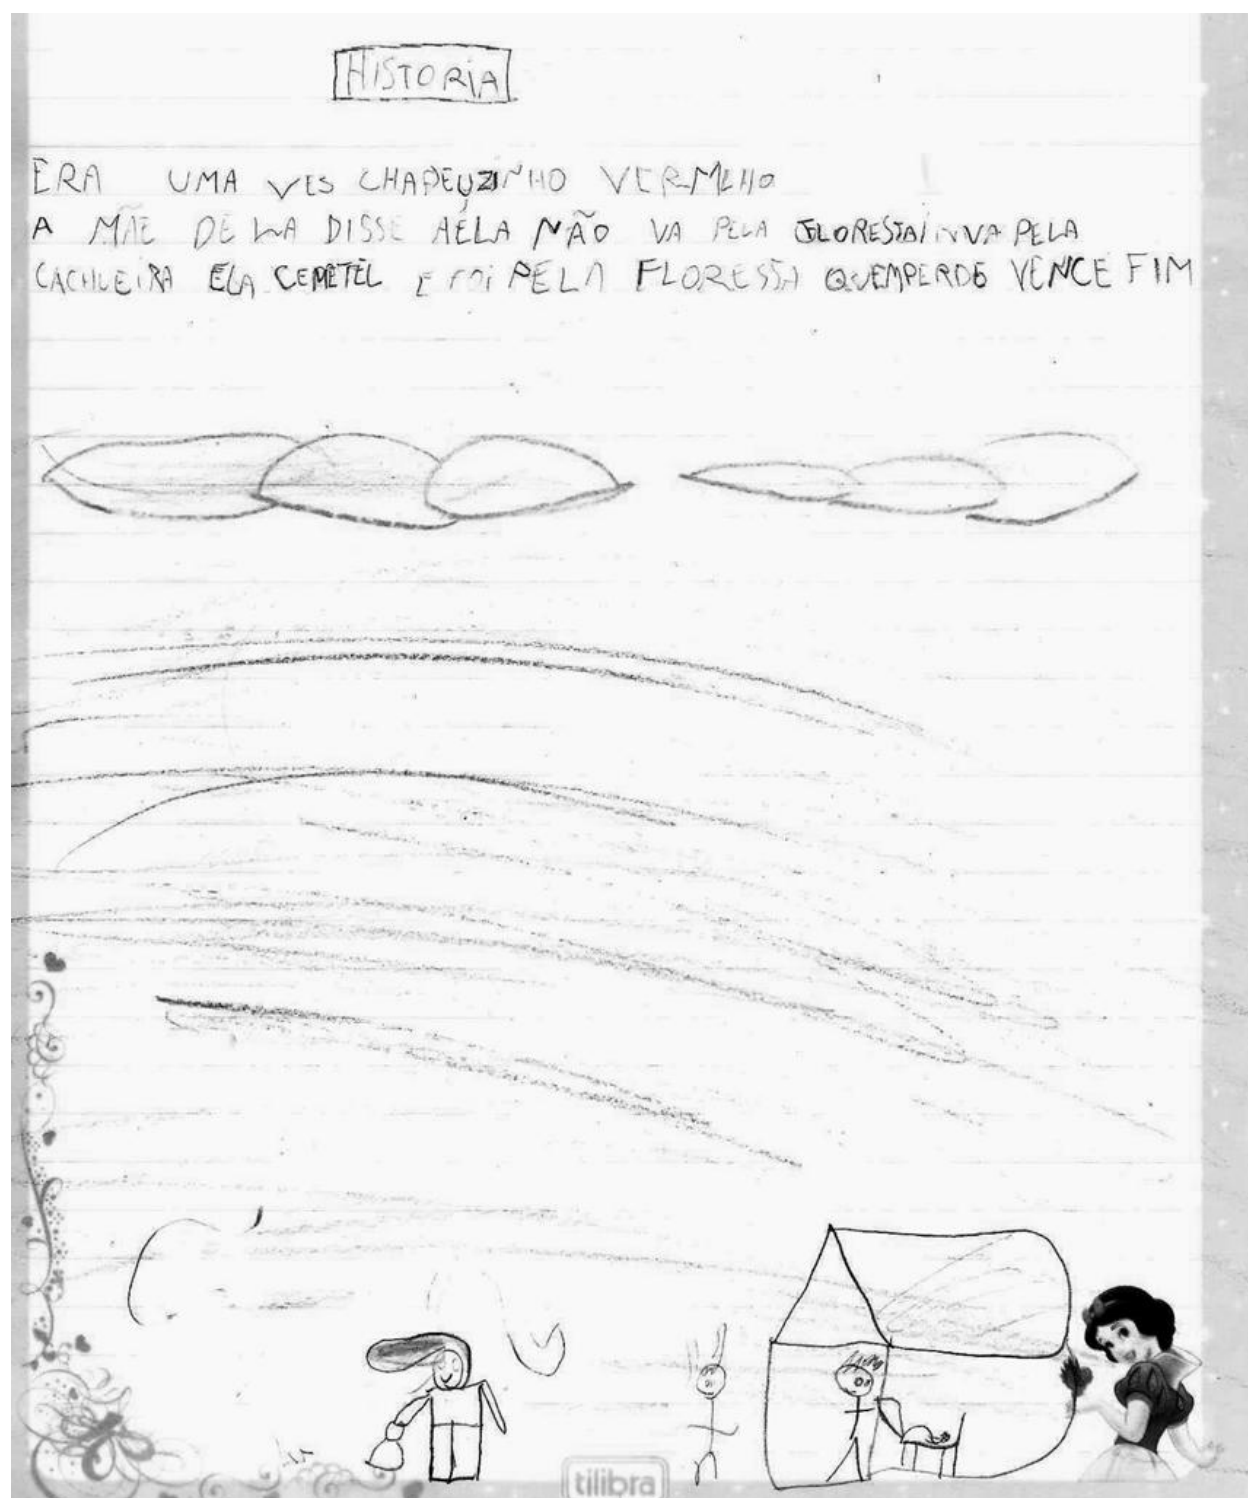 HISTORIA
ERA UMA VES CHAPEUZINHO VERMLHO
A MÃE DE LA DISSE AELA NÃO VA PELA FLORESTA VA PELA
CACHUEIRA ELA E FOI PELA FLORESSA QUEMPERDE VENCE FIM
tilibra